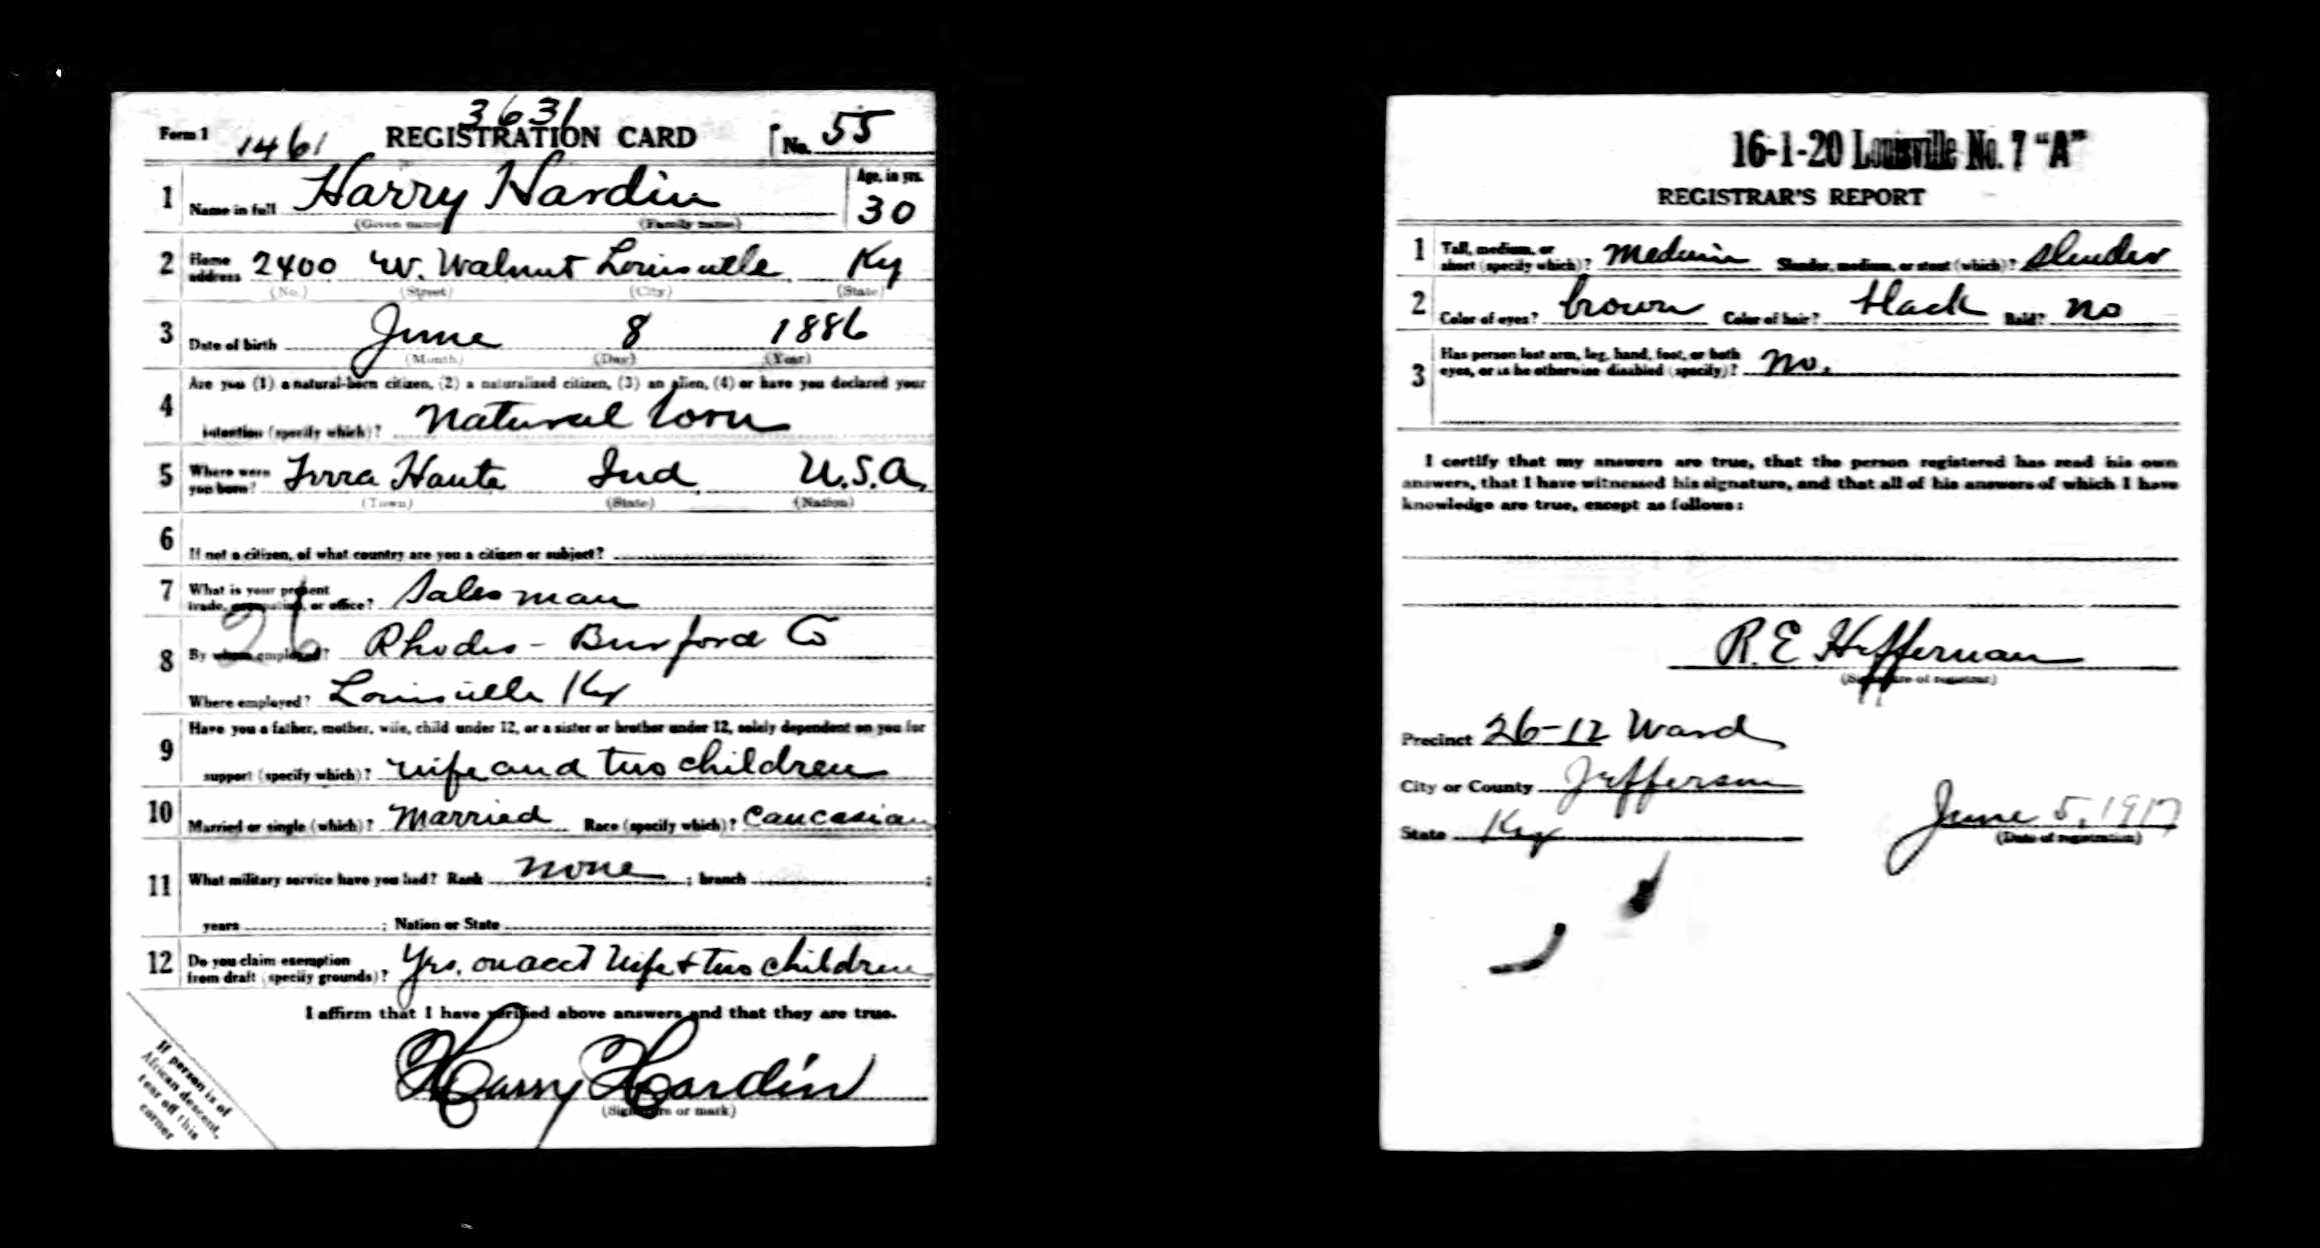 3631
Form 1 1461 REGISTRATION CARD No. 55
1 Name in full Harry Hardin Age, in yrs. 30
(Given name) (Family name)
2 Home address 2400 W. Walnut Louisville Ky
(No.) (Street) (City) (State)
3 Date of birth June 8 1886
(Month) (Day) (Year)
4 Are you (1) a natural-born citizen, (2) a naturalized citizen, (3) an alien, (4) or have you declared your
intention (specify which)? Natural born
5 Where were you born? Terra Haute Ind U.S.A.
(Town) (State) (Nation)
6 If not a citizen, of what country are you a citizen or subject?
7 What is your present trade, occupation, or office? Salesman
26
8 By whom employed? Rhodes-Burford Co
Where employed? Louisville Ky
9 Have you a father, mother, wife, child under 12, or a sister or brother under 12, solely dependent on you for
support (specify which)? wife and two children
10 Married or single (which)? Married Race (specify which)? Caucasian
11 What military service have you had? Rank none ; branch ;
years ; Nation or State
12 Do you claim exemption from draft (specify grounds)? Yes, on acct Wife + two children
I affirm that I have verified above answers and that they are true.
Harry Hardin
(Signature or mark)
If person is of
African descent,
tear off this
corner
16-1-20 Louisville No. 7 "A"
REGISTRAR'S REPORT
1 Tall, medium, or short (specify which)? Medium Slender, medium, or stout (which)? Slender
2 Color of eyes? brown Color of hair? black Bald? no
3 Has person lost arm, leg, hand, foot, or both
eyes, or is he otherwise disabled (specify)? No.
I certify that my answers are true, that the person registered has read his own
answers, that I have witnessed his signature, and that all of his answers of which I have
knowledge are true, except as follows:
R. E. Heffernan
(Signature of registrar)
Precinct 26-12 Ward
City or County Jefferson
State Ky June 5, 1917
(Date of registration)